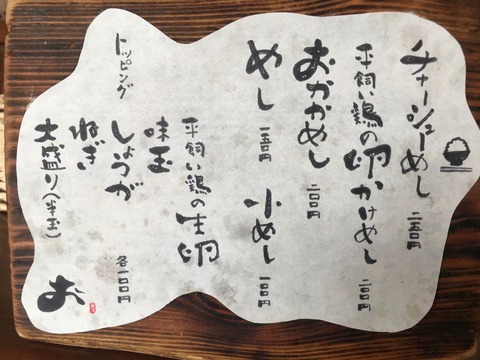 チャーシューめし 二五〇円
平飼い鶏の卵かけめし 二〇〇円
おかかめし 二〇〇円
めし 一五〇円 小めし 一〇〇円
平飼い鶏の生卵
味玉
しょうが
ねぎ
大盛り(半玉)
各一〇〇円
トッピング
お